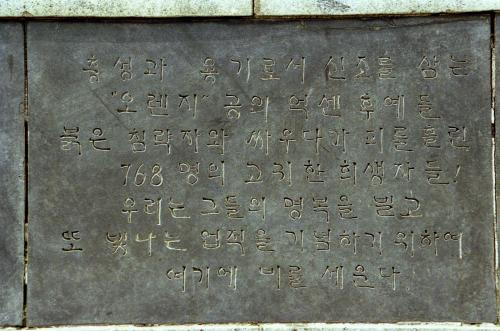 충성과 용기로서 신조를 삼는
"오렌지" 공의 억센 후예들
붉은 침략자와 싸우다가 피를 흘린
768 명의 고귀한 희생자들!
우리는 그들의 명복을 빌고
또 빛나는 업적을 기념하기 위하여
여기에 비를 세운다.